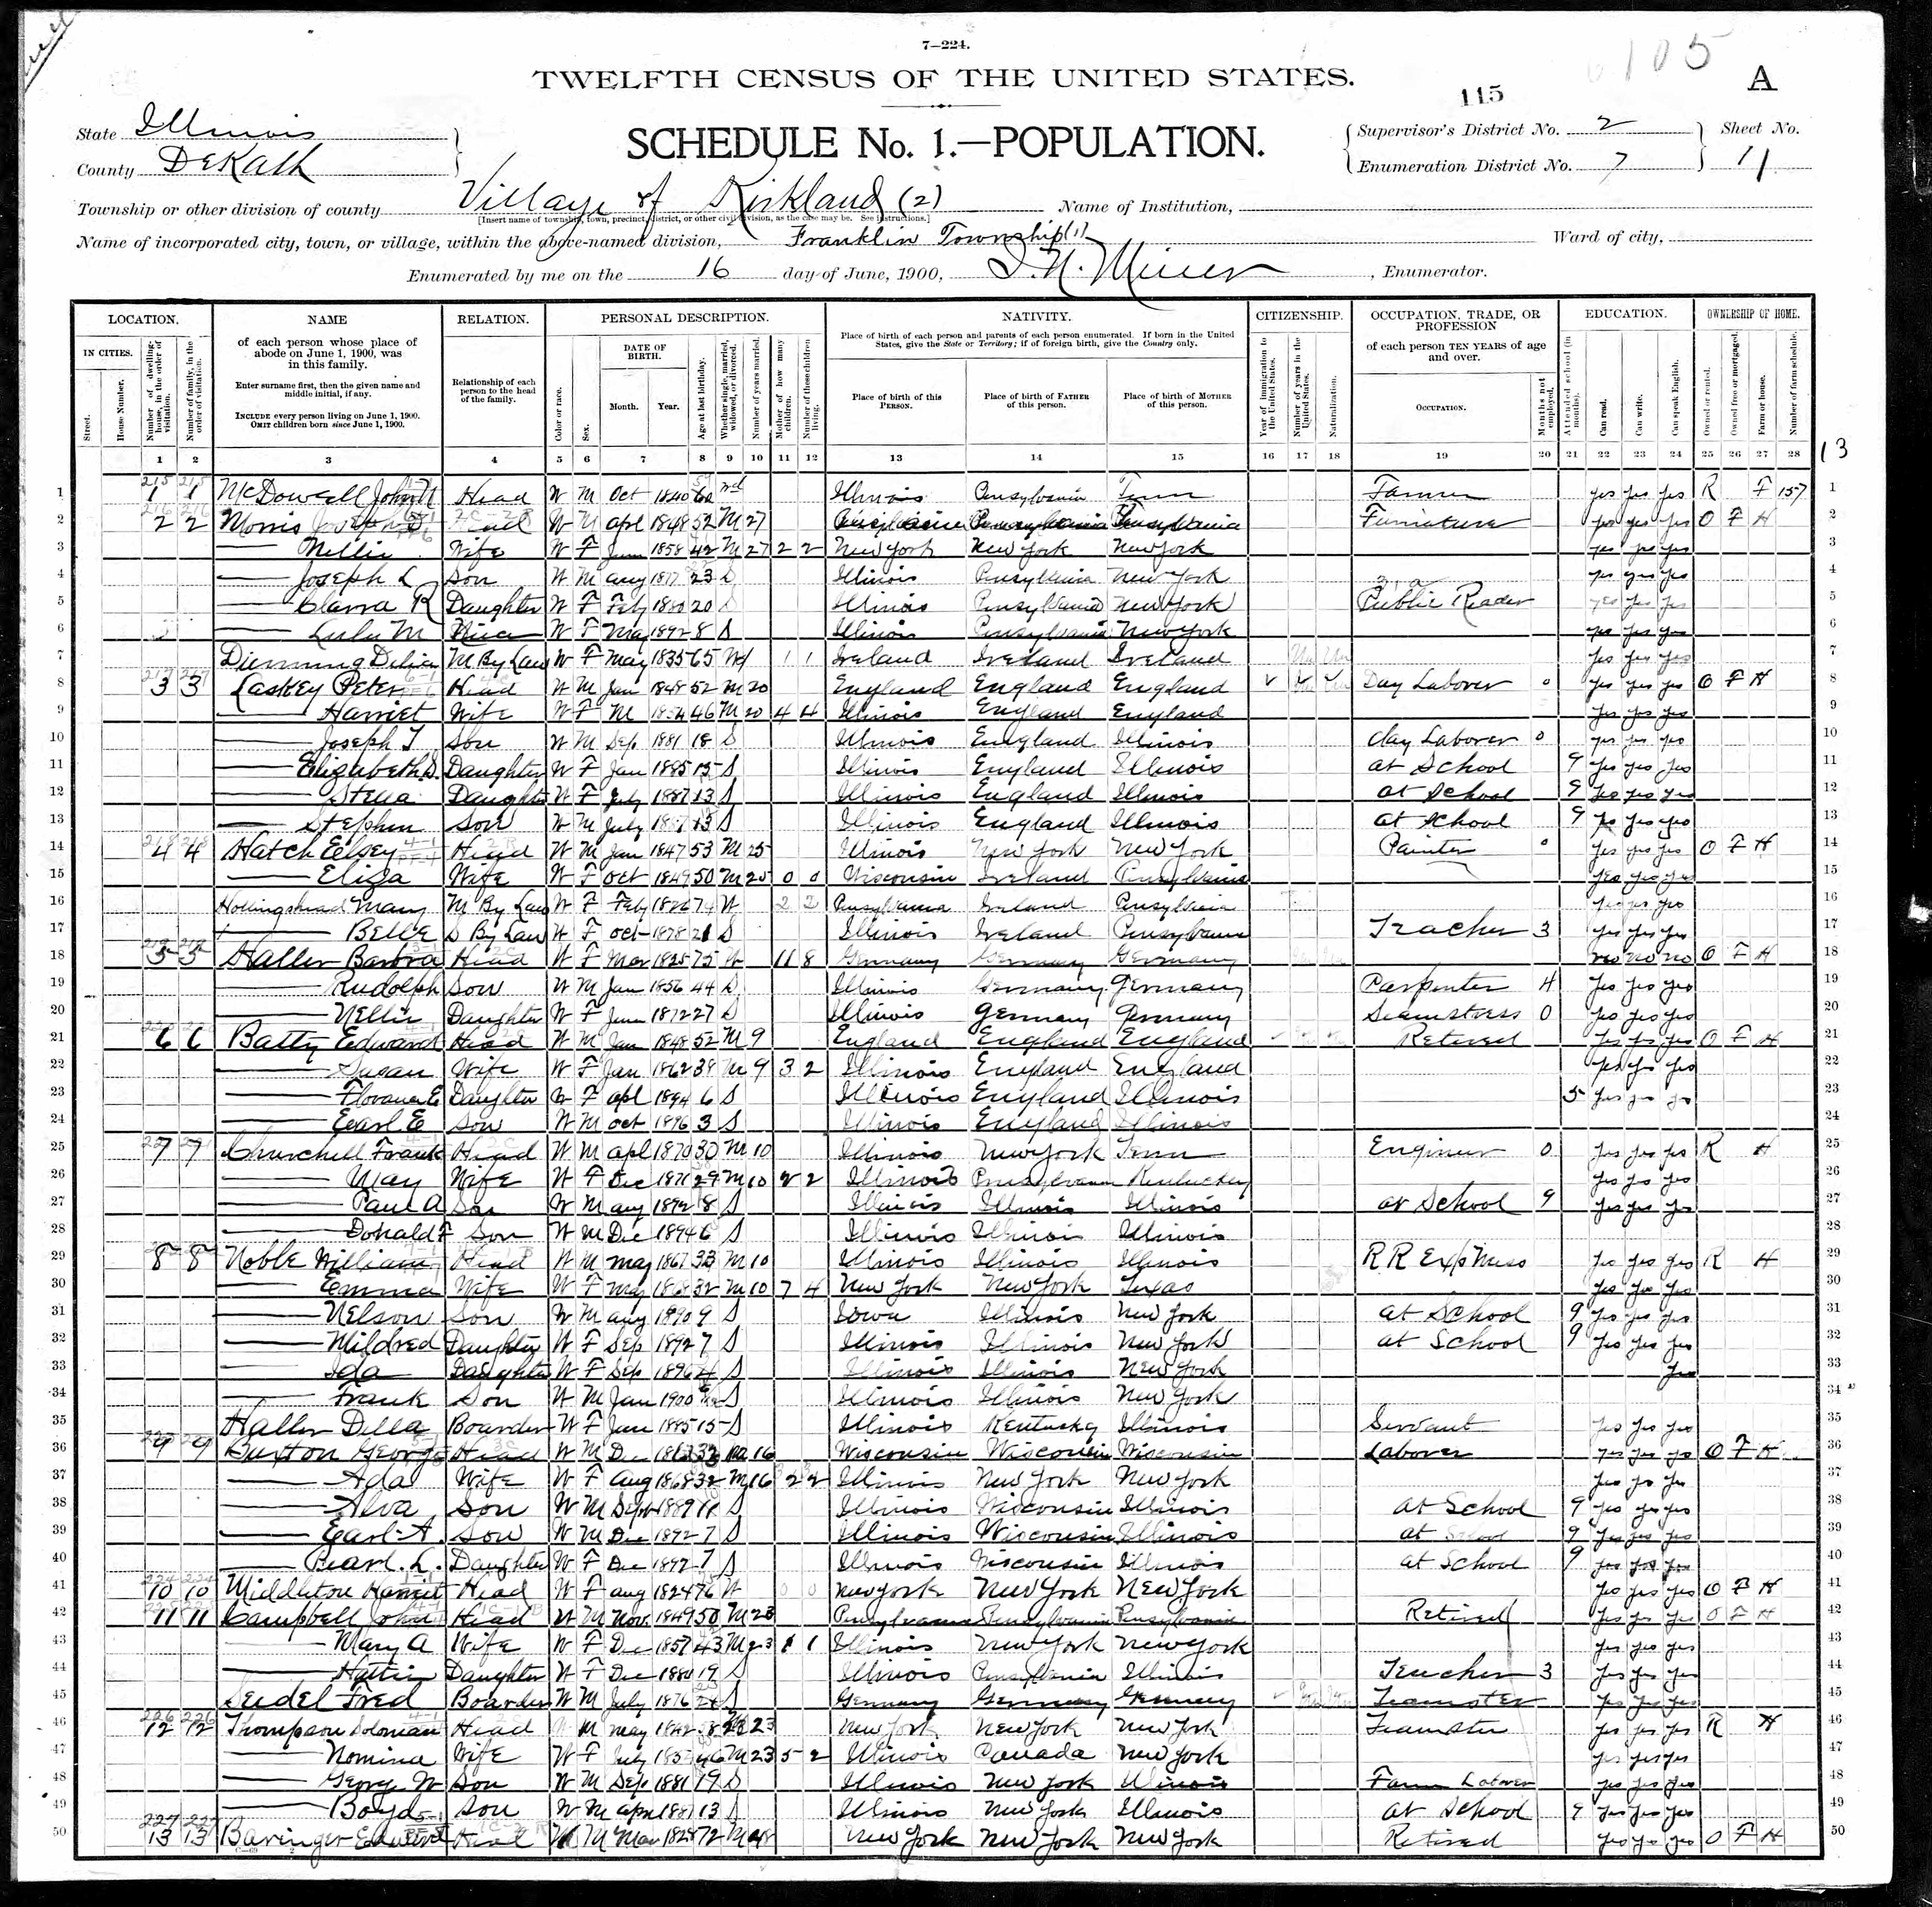 7—224.
105
TWELFTH CENSUS OF THE UNITED STATES.
115
A
State Illinois
County DeKalb
SCHEDULE No. 1.—POPULATION.
Supervisor's District No. 2
Enumeration District No. 7
Sheet No.
11
Township or other division of county Village of Kirkland (2)
[Insert name of township, town, precinct, district, or other civil division, as the case may be. See instructions.]
Name of Institution,
Name of incorporated city, town, or village, within the above-named division, Franklin Township (1)
Ward of city,
Enumerated by me on the 16 day of June, 1900, Enumerator.
LOCATION. NAME RELATION. PERSONAL DESCRIPTION. NATIVITY. CITIZENSHIP. OCCUPATION, TRADE, OR PROFESSION EDUCATION. OWNERSHIP OF HOME.
IN CITIES. Street. House Number. Number of dwelling-house, in the order of visitation. Number of family, in the order of visitation.
of each person whose place of abode on June 1, 1900, was in this family.
Enter surname first, then the given name and middle initial, if any.
INCLUDE every person living on June 1, 1900. OMIT children born since June 1, 1900.
Relationship of each person to the head of the family.
Color or race. Sex. DATE OF BIRTH. Month. Year. Age at last birthday. Whether single, married, widowed, or divorced. Number of years married. Mother of how many children. Number of these children living.
Place of birth of each person and parents of each person enumerated. If born in the United States, give the State or Territory; if of foreign birth, give the Country only.
Place of birth of this PERSON. Place of birth of FATHER of this person. Place of birth of MOTHER of this person.
Year of immigration to the United States. Number of years in the United States. Naturalization.
of each person TEN YEARS of age and over.
OCCUPATION. Months not employed.
Attended school (in months). Can read. Can write. Can speak English.
Owned or rented. Owned free or mortgaged. Farm or house. Number of farm schedule.
1 2 3 4 5 6 7 8 9 10 11 12 13 14 15 16 17 18 19 20 21 22 23 24 25 26 27 28
13
1 1 1 McDowell John Head W M Oct 1840 Illinois Pensylvania Tenn Farmer yes yes yes R F 157 1
2 2 2 Morris Joseph Head W M apl 1848 52 M 27 Pensylvania Furniture yes yes yes O F H 2
3 Nellie Wife W F June 1858 42 M 27 2 2 New York New York New York yes yes yes 3
4 Joseph L Son W M aug 23 S Illinois Pensylvania New York yes yes yes 4
5 Clarra R Daughter W F Feb 1880 20 S Illinois Pensylvania New York Public Reader yes yes yes 5
6 Lulu M W F May 1892 8 S Illinois Pensylvania New York yes yes yes 6
7 M By Law W F May 1835 65 Wd 1 1 Ireland Ireland Ireland yes yes yes 7
8 3 3 Laskey Peter Head W M Jan 1848 52 M 20 England England England Day Laborer 0 yes yes yes O F H 8
9 Harriet Wife W F 1854 46 M 20 4 4 Illinois England England yes yes yes 9
10 Joseph T Son W M Sep 1881 18 S Illinois England Illinois day Laborer 0 yes yes yes 10
11 Elizabeth D. Daughter W F Jan 1885 15 S Illinois England Illinois at School 9 yes yes yes 11
12 Stella Daughter W F July 1887 13 S Illinois England Illinois at School 9 yes yes yes 12
13 Stephen Son W M July 13 S Illinois England Illinois at school 9 yes yes yes 13
14 4 4 Hatch Elsey Head W M Jan 1847 53 M 25 Illinois New York New York Painter 0 yes yes yes O F H 14
15 Eliza Wife W F Oct 1849 50 M 25 0 0 Wisconsin Ireland Pensylvania yes yes yes 15
16 Hollingshead Mary M By Law W F Feb 1826 74 W 2 2 Pensylvania Ireland Pensylvania yes yes yes 16
17 Belle S By Law W F oct 1878 21 S Illinois Ireland Pensylvania Teacher 3 yes yes yes 17
18 5 5 Haller Barbra Head W F Mar 1825 75 W 11 8 Germany Germany Germany no no no O F H 18
19 Rudolph Son W M Jan 1856 44 S Illinois Germany Germany Carpenter 4 yes yes yes 19
20 Nellie Daughter W F June 1872 27 S Illinois Germany Germany Seamstress 0 yes yes yes 20
21 6 6 Batty Edward Head W M Jan 1848 52 M 9 England England England Retired yes yes yes O F H 21
22 Susan Wife W F Jan 1862 38 M 9 3 2 Illinois England England yes yes yes 22
23 E Daughter W F apl 1894 6 S Illinois England Illinois 5 yes 23
24 Earl E Son W M oct 1896 3 S Illinois England Illinois 24
25 7 7 Churchell Frank Head W M apl 1870 30 M 10 Illinois New York Tenn Engineer 0 yes yes yes R H 25
26 May Wife W F Dec 1871 29 M 10 2 2 Illinois Pensylvania Kentuckey yes yes yes 26
27 Paul A Son W M aug 1892 8 S Illinois Illinois Illinois at School 9 yes yes yes 27
28 Donald F Son W M Dec 1894 6 S Illinois Illinois Illinois 28
29 8 8 Noble William Head W M may 1867 33 M 10 Illinois Illinois Illinois R R Exp Mess yes yes yes R H 29
30 Emma Wife W F may 1868 32 M 10 7 4 New York New York Texas yes yes yes 30
31 Nelson Son W M aug 1890 9 S Iowa Illinois New York at School 9 yes yes yes 31
32 Mildred Daughter W F Sep 1892 7 S Illinois Illinois New York at School 9 yes yes yes 32
33 Ida Daughter W F Sep 1896 4 S Illinois Illinois New York yes 33
34 Frank Son W M Jan 1900 S Illinois Illinois New York 34
35 Haller Della Boarder W F Jan 1885 15 S Illinois Kentucky Illinois Servant yes yes yes 35
36 9 9 Buxton George Head W M Dec M 16 Wisconsin Wisconsin Wisconsin Laborer yes yes yes O F H 36
37 Ada Wife W F Aug 1868 32 M 16 2 2 Illinois New York New York yes yes yes 37
38 Alva Son W M Sept 1889 11 S Illinois Wisconsin Illinois at School 9 yes yes yes 38
39 Earl A. Son W M Dec 1892 7 S Illinois Wisconsin Illinois at School 9 yes yes yes 39
40 Pearl L. Daughter W F Dec 1892 7 S Illinois Wisconsin Illinois at School 9 yes yes yes 40
41 10 10 Middleton Harriet Head W F aug 1824 76 W 0 0 New York New York New York yes yes yes O F H 41
42 11 11 Campbell John Head W M Nov. 1849 50 M 23 Pensylvania Pensylvania Pensylvania Retired yes yes yes O F H 42
43 Mary A Wife W F Dec 1857 43 M 23 1 1 Illinois New York New York yes yes yes 43
44 Hattie Daughter W F Dec 1880 19 S Illinois Pensylvania Illinois Teacher 3 yes yes yes 44
45 Seidel Fred Boarder W M July 1876 S Germany Germany Germany Teamster yes yes yes 45
46 12 12 Thompson Soloman Head M may 1842 58 M 23 New York New York New York Teamster yes yes yes R H 46
47 Nomina Wife W F July 46 M 23 5 2 Illinois Canada New York yes yes yes 47
48 George W Son W M Sep 1881 19 S Illinois New York Illinois Farm Laborer yes yes yes 48
49 Boyd Son W M apr 13 S Illinois New York Illinois at School 9 yes yes yes 49
50 13 13 Baringer Edward Head M Mar 1828 72 M 48 New York New York New York Retired yes yes yes O F H 50